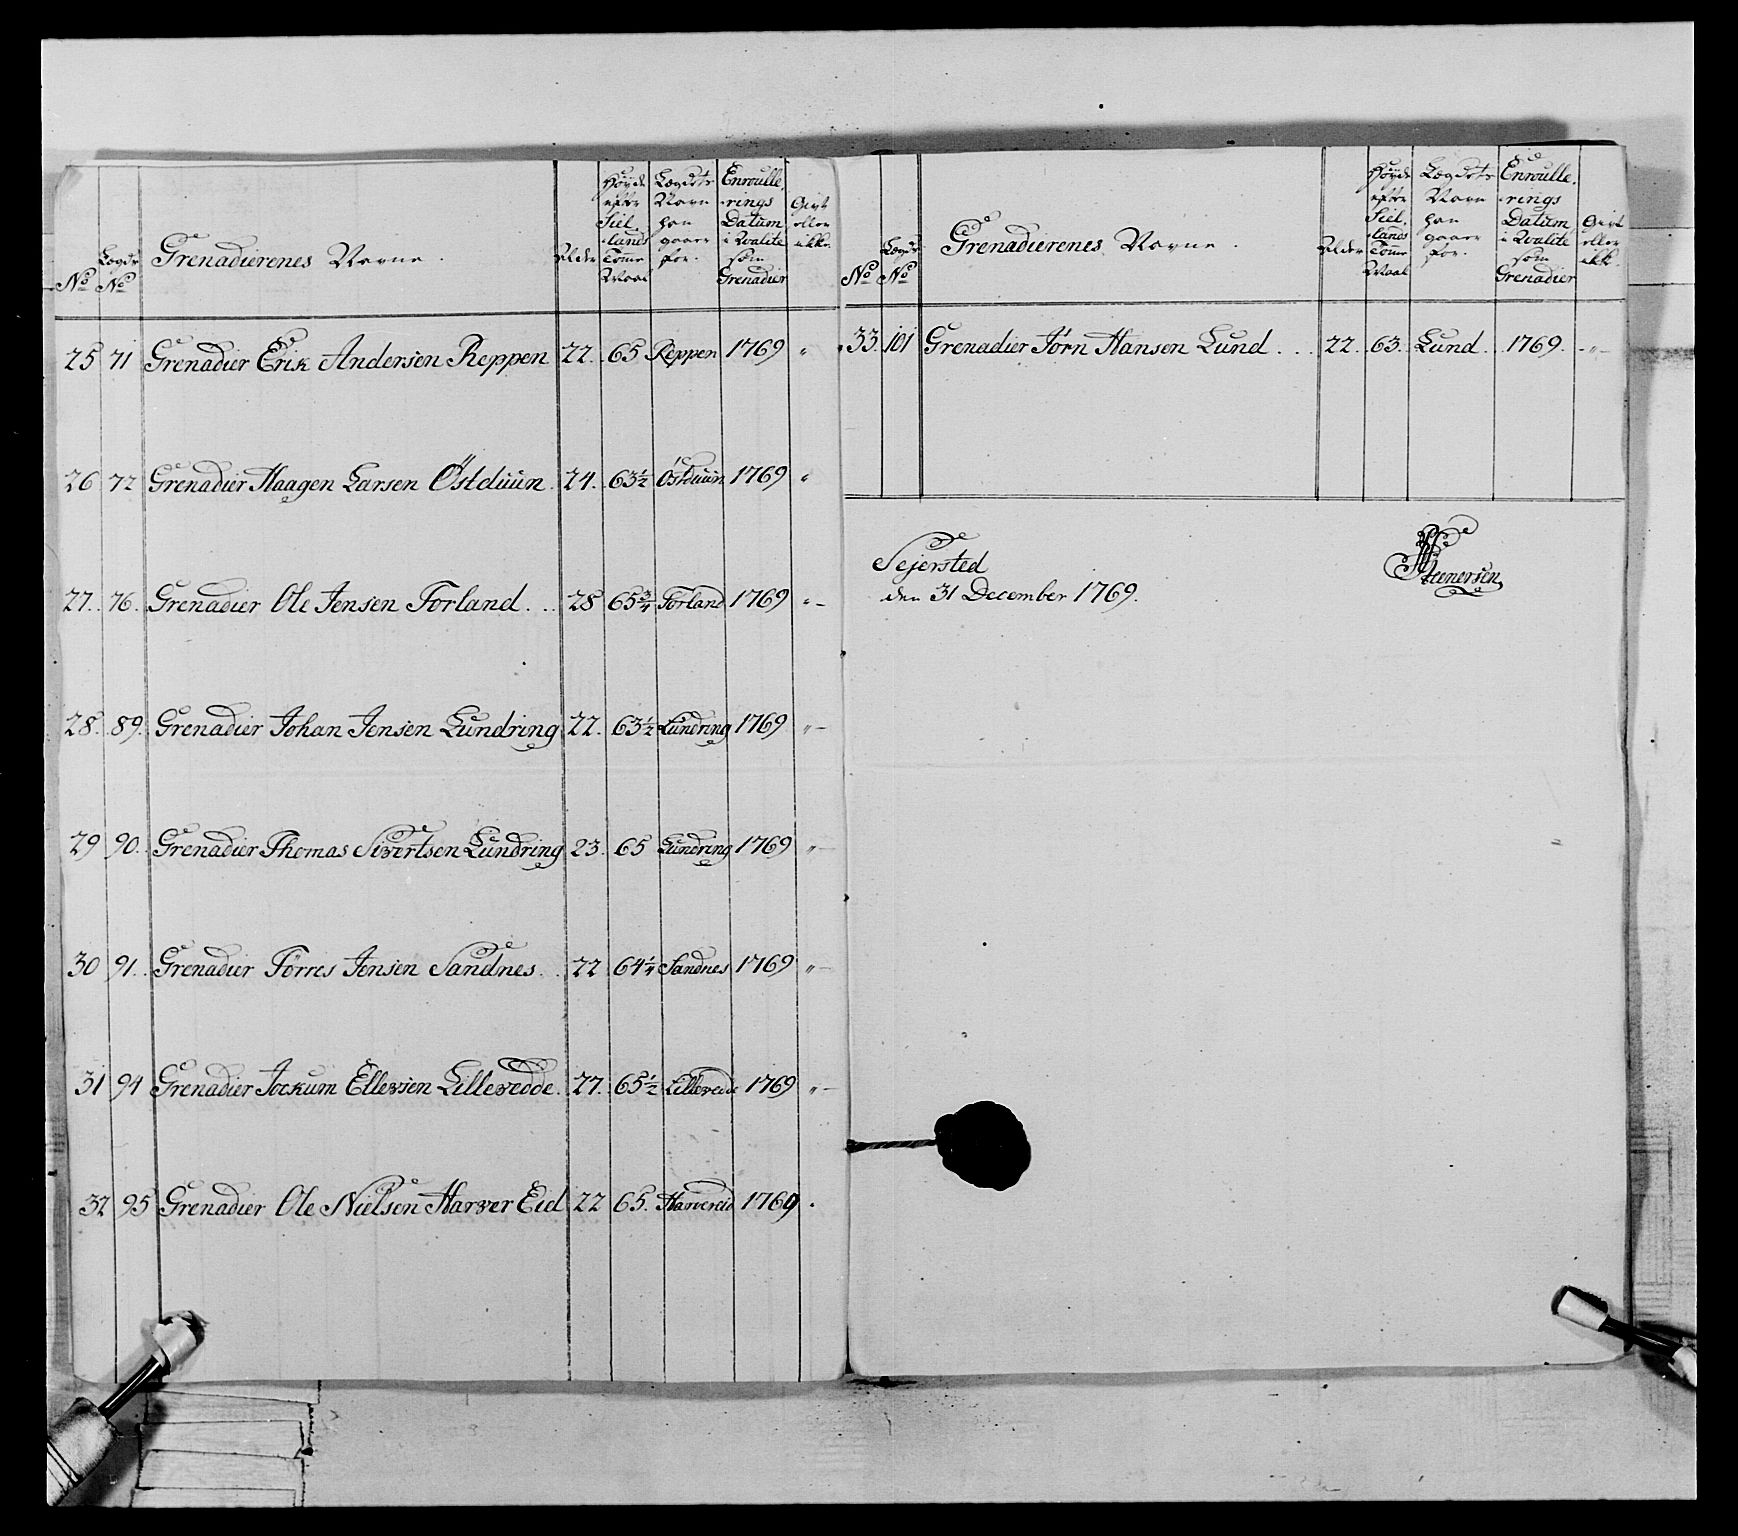 No
Lægds No
Grenadierenes Navne.
Alder
Høyde efter Siellands Tomme Maal
Lægdets Navn han gaaer for.
Enroullerings Datum i Qvalite som Grenadier
Givt eller ikke.
25 71 Grenadier Erik Andersen Reppen 22. 65 Reppen 1769 "
26 72 Grenadier Haagen Larsen Östduun. 24. 63½ Östduun 1769 "
27. 76. Grenadier Ole Jensen Forland. . . 28 65¾ Forland 1769 "-
28. 89. Grenadier Johan Jensen Lundring 22. 63½ Lundring 1769 "-
29 90. Grenadier Thomas Sivertsen Lundring 23. 65 Lundring 1769 "-
30 91. Grenadier Törres Jensen Sandnes. . 22 64¼ Sandnes 1769 "-
31 94 Grenadier Jockum Ellevsen Lillevedde. 27. 65½ Lillevedde 1769 "-
32 95 Grenadier Ole Nielsen Harver Eid 22 65. Harvereid 1769 "
No
Lægds No
Grenadierenes Navne.
Alder
Høyde efter Siellands Tomme Maal
Lægdets Navn han gaaer for.
Enroullerings Datum i Qvalite som Grenadier
Givt eller ikke.
33. 101 Grenadier Jörn Hansen Lund . . . 22. 63. Lund. 1769. -"-
Sejersted
den 31 December 1769.
Steenersen